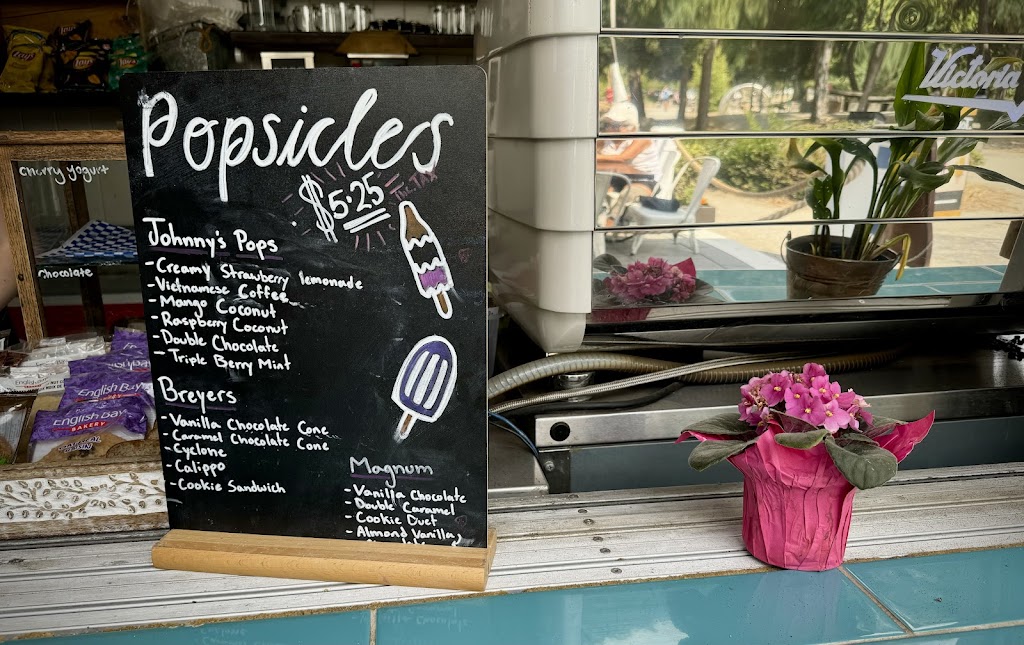 Popsicles
$5.25
inc. TAX
Johnny's Pops
- Creamy Strawberry lemonade
- Vietnamese Coffee
- Mango Coconut
- Raspberry Coconut
- Double Chocolate
- Triple Berry Mint
Breyers
- Vanilla Chocolate Cone
- Caramel Chocolate Cone
- Cyclone
- Calippo
- Cookie Sandwich
Magnum
- Vanilla Chocolate
- Double Caramel
- Cookie Duet
- Almond Vanilla
Cherry yogurt
Chocolate
English Bay
BAKERY
English Bay
Victoria